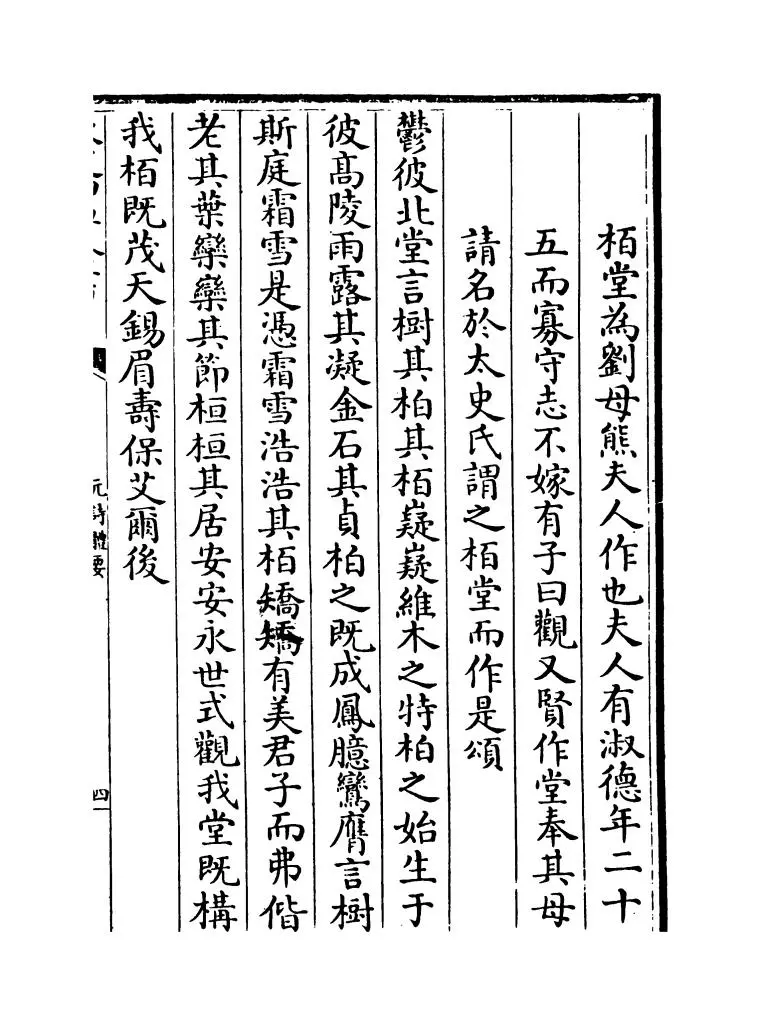 栢堂為劉母熊夫人作也夫人有淑德年二十
五而寡守志不嫁有子曰觀又賢作堂奉其母
請名於太史氏謂之栢堂而作是頌
鬱彼北堂言樹其柏其栢嶷嶷維木之特柏之始生于
彼髙陵雨露其凝金石其貞柏之既成鳳臆鸞膺言樹
斯庭霜雪是憑霜雪浩浩其栢矯矯有美君子而弗偕
老其葉欒欒其節桓桓其居安安永世式觀我堂既構
我栢既茂天錫眉壽保艾爾後
元詩體要
四